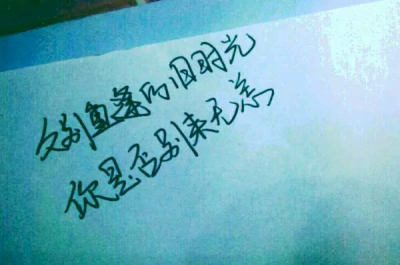 久别重逢的旧时光
你是否别来无恙